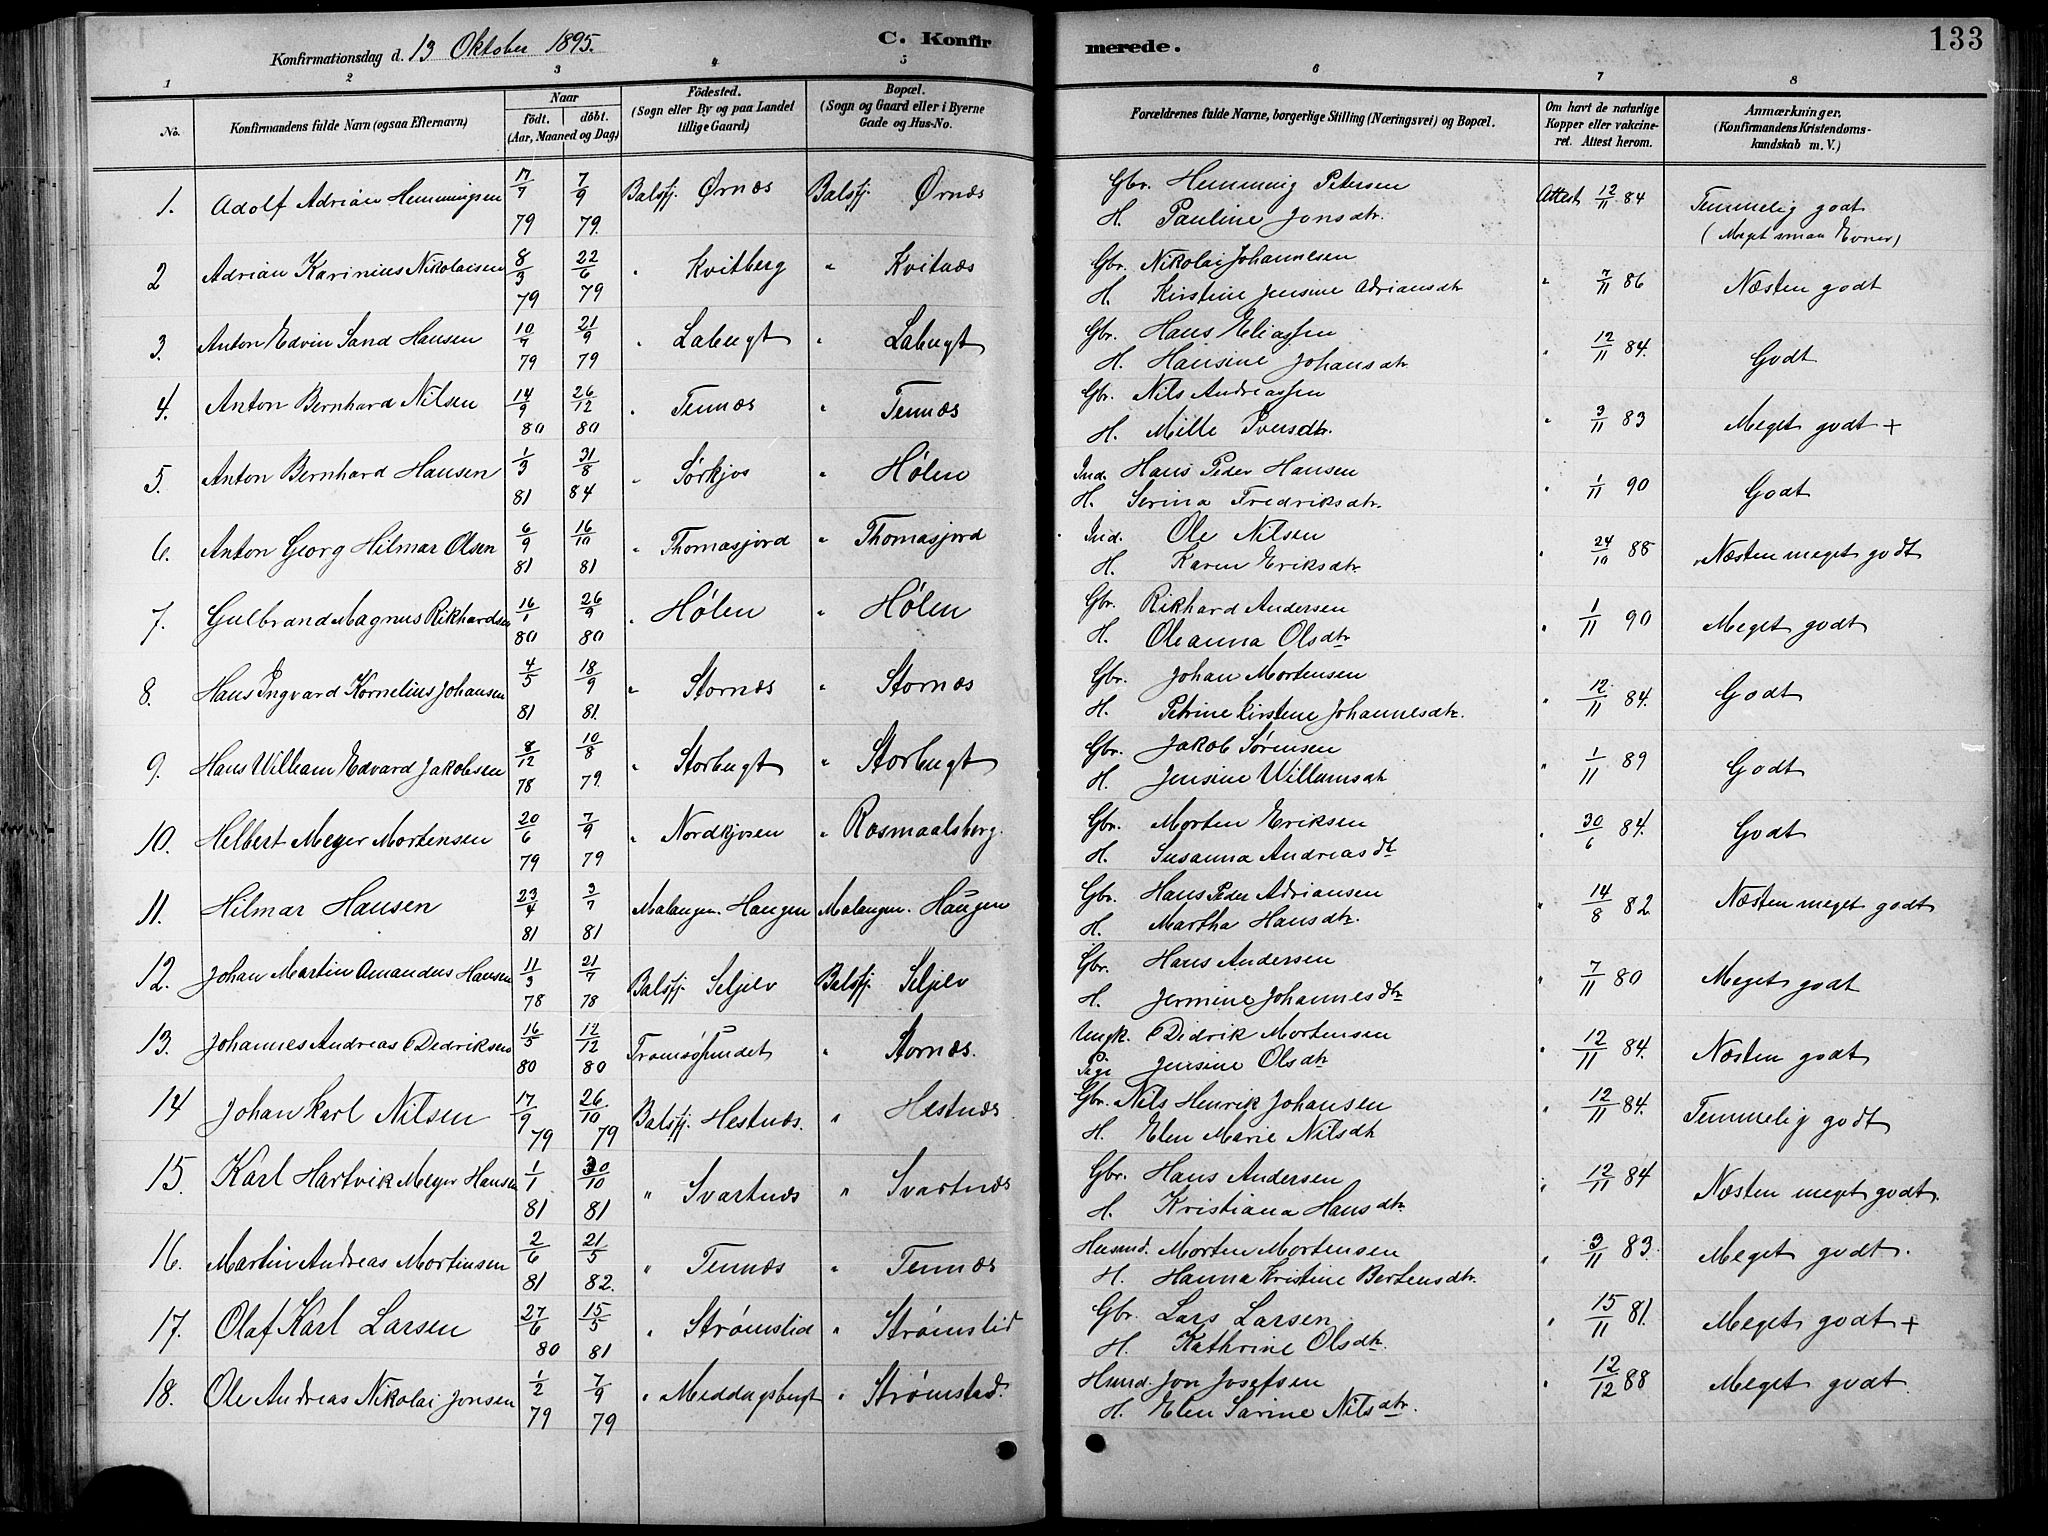 133
Konfirmationsdag d. 13 Oktober 1895.
C. Konfirmerede.
1 2 3 4 5 6 7 8
No. Konfirmandens fulde Navn (ogsaa Efternavn) Naar født. døbt. (Aar, Maaned og Dag) Födested. (Sogn eller By og paa Landet tillige Gaard) Bopæl. (Sogn og Gaard eller i Byerne Gade og Hus-No. Forældrenes fulde Navne, borgerlige Stilling (Næringsvei) og Bopæl. Om havt de naturlige Kopper eller vakcineret. Attest herom. Anmærkninger. (Konfirmandens Kristendomskundskab m. V.)
1. Adolf Adrian Hemmingsen 17/7 79 7/9 79. Balsfj. Ørnæs Balsfj. Ørnæs Gbr. Hemming Petersen Attest 12/11 84 Temmelig godt
H. Pauline Jonsdtr. (Meget smaa Evner)
2 Adrian Karinius Nikolaisen 8/3 79 22/6 79 " Kvitberg " Kvitnæs Gbr. Nikolai Johannesen " 7/11 86 Næsten godt
H. Kirstine Jensine Adriansdtr
3. Anton Edvin Sand Hansen 10/7 79 21/9 79 " Labugt " Labugt Gbr. Hans Eliassen " 12/11 84. Godt
H. Hansine Johansdtr
4. Anton Bernhard Nilsen 14/9 80 26/12 80 " Tennæs " Tennæs Gbr. Nils Andreassen " 3/11 83 Meget godt +
H. Mille Iversdtr.
5. Anton Bernhard Hansen 1/3 81 31/8 84 " Sørkjos " Hølen Ind. Hans Peder Hansen " 1/11 90 Godt
H. Serina Fredriksdtr.
6. Anton Georg Hilmar Olsen 6/9 81 16/10 81 " Thomasjord " Thomasjord Ind. Ole Nilsen " 24/10 88 Næsten meget godt
H. Karen Eriksdtr.
7. Gulbrand Magnus Rikhardsen 16/1 80 26/9 80 " Hølen " Hølen Gbr. Rikhard Andersen " 1/11 90 Meget godt
H. Oleanna Olsdtr
8. Hans Ingvard Kornelius Johansen 4/5 81 18/9 81. " Stornæs " Stornæs Gbr. Johan Mortensen " 12/11 84. Godt
H. Petrine Kirstine Johannesdtr.
9. Hans William Edvard Jakobsen 8/12 78 10/8 79. " Storbugt " Storbugt Gbr. Jakob Sørensen " 1/11 89 Godt
H. Jensine Willumsdtr
10. Helbert Meyer Mortensen 20/6 79 7/9 79 " Nordkjosen " Rosmaalsberg. Gbr. Morten Eriksen " 30/6 84. Godt
H. Susanna Andreasdtr
11. Hilmar Hansen 23/4 81 3/7 81 Malangen. Haugen Malangen. Haugen Gbr. Hans Peder Adriansen " 14/8 82 Næsten meget godt
H. Martha Hansdtr.
12. Johan Martin Amandus Hansen 11/3 78 21/7 78 Balsfj. Seljelv Balsfj. Seljelv Gbr. Hans Andersen " 7/11 80 Meget godt
H. Jermine Johannesdtr
13. Johannes Andreas Dedriksen 16/5 80 12/12 80 Tromsøsundet " Stornæs. Ungk. Didrik Mortensen " 12/11 84. Næsten godt
Pige Jensine Olsdtr
14 Johan Karl Nilsen 17/9 79 26/10 79 Balsfj. Hestnæs. " Hestnæs Gbr. Nils Henrik Johansen " 12/11 84. Temmelig godt
H. Elen Marie Nilsdtr
15. Karl Hartvik Meyer Hansen 1/1 81 30/10 81 " Svartnæs " Svartnæs Gbr. Hans Andersen " 12/11 84 Næsten meget godt.
H. Kristiana Hansdtr.
16. Martin Andreas Mortensen 2/6 81 21/5 82. " Tennæs " Tennæs Husmd. Morten Mortensen " 3/11 83. Meget godt.
H. Hanna Kristine Bertensdtr.
17. Olaf Karl Larsen 27/6 80 15/5 81 " Strømslid " Strømslid Gbr. Lars Larsen " 15/11 81. Meget godt +
H. Kathrine Olsdtr.
18. Ole Andreas Nikolai Jonsen 1/2 79 7/9 79 " Meddagsbugt " Strømstad. Hsmd. Jon Josefsen " 12/12 88 Meget godt
H. Elen Sarine Nilsdtr.